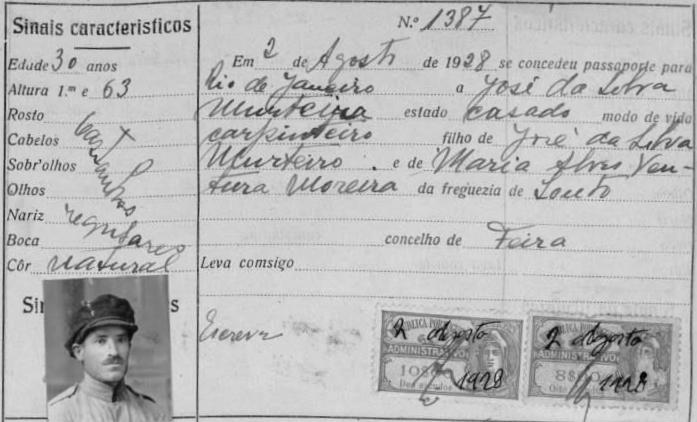 Sinais caracteristicos
Edade 30 anos
Altura 1.m e 63
Rosto
Cabelos castanhos
Sobr'olhos
Olhos
Nariz regulares
Boca
Côr natural
N.º 1387
Em 2 de Agosto de 1928 se concedeu passaporte para
Rio de Janeiro a José da Silva
Murteira estado casado modo de vida
carpinteiro filho de José da Silva
Murteiro e de Maria Alves Ven-
tura Moreira da freguezia de Souto
concelho de Feira
Leva comsigo
Escreve
2 Agosto
ADMINISTRATIVO
1928
2 Agosto
ADMINISTRATIVO
1928